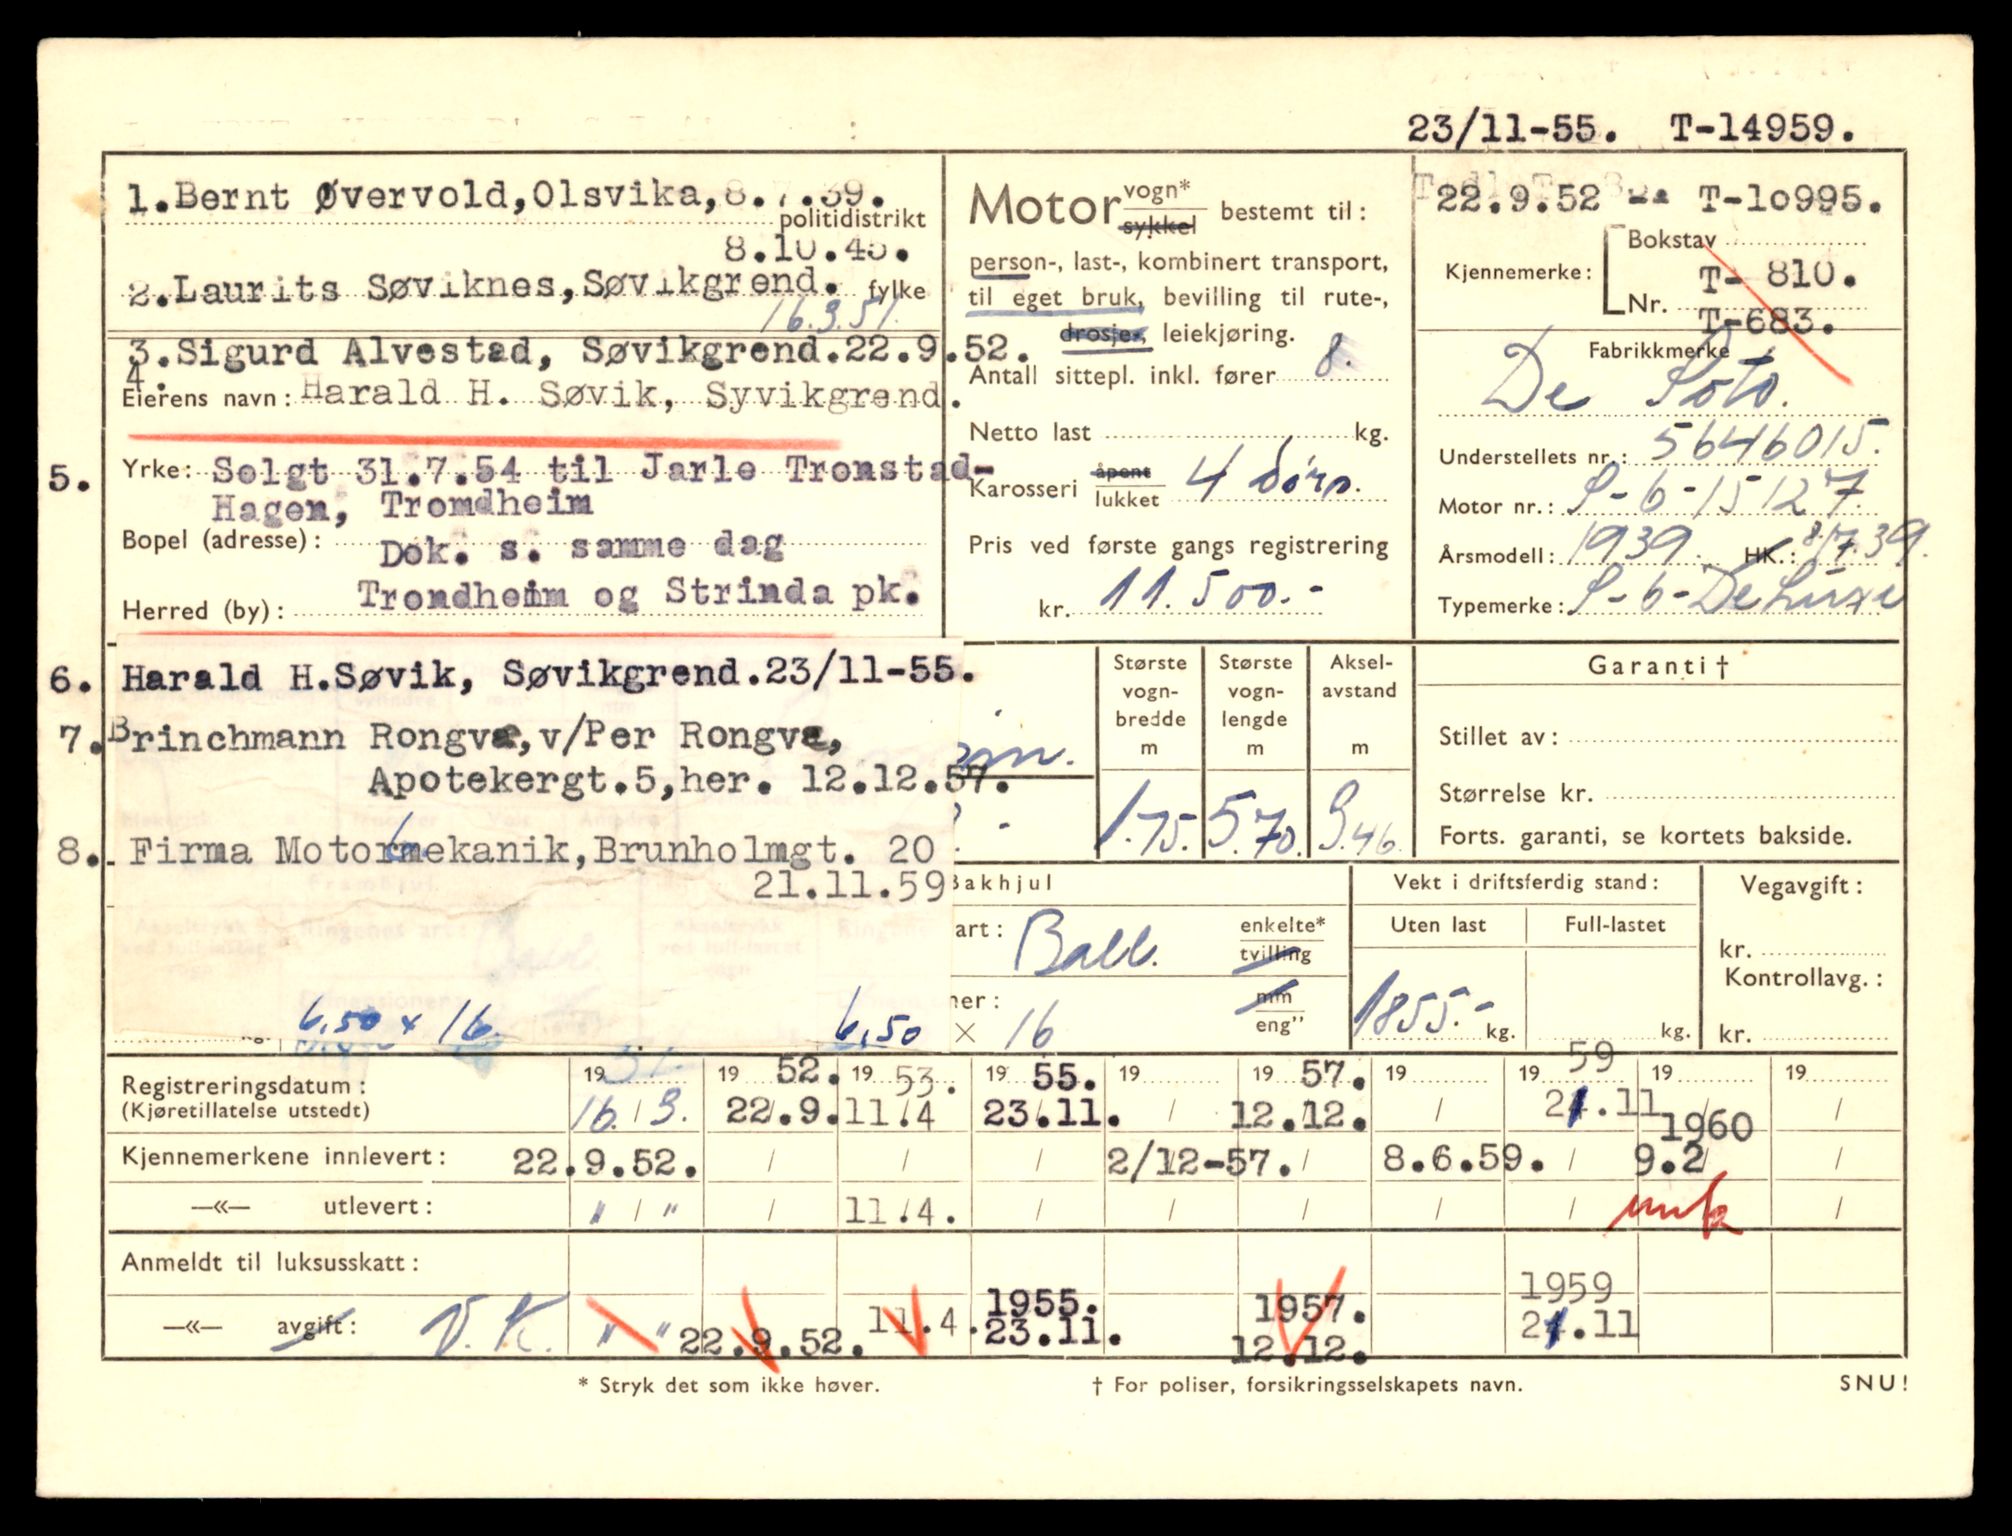 23/11-55. T-14959.
1. Bernt Øvervold, Olsvika, 8.7.39.
politidistrikt
8.10.45.
2. Laurits Søviknes, Søvikgrend. fylke
16.3.51.
3. Sigurd Alvestad, Søvikgrend. 22.9.52.
4.
Eierens navn: Harald H. Søvik, Syvikgrend.
5. Yrke: Solgt 31.7.54 til Jarle Tronstad-
Hagen, Tromdheim
Bopel (adresse): Dok. s. samme dag
Herred (by): Trondheim og Strinda pk.
Motor vogn* sykkel bestemt til:
person-, last-, kombinert transport,
til eget bruk, bevilling til rute-,
drosje-, leiekjøring.
Antall sittepl. inkl. fører 8.
Netto last kg.
Karosseri åpent lukket 4 dørs.
Pris ved første gangs registrering
kr. 11.500.-
22.9.52 -- T-10995.
Bokstav
Kjennemerke: T- 810.
Nr.
T-683.
Fabrikkmerke
De Soto.
Understellets nr.: 5646015.
Motor nr.: S-6-15127.
Årsmodell: 1939. HK.: 8/7.39.
Typemerke: S-6-De Luxe
6. Harald H. Søvik, Søvikgrend. 23/11-55.
7. Brinchmann Rongve, v/Per Rongve,
Apotekergt. 5, her. 12.12.57.
8. Firma Motormekanik, Brunholmgt. 20
21.11.59
Største vogn-bredde m
Største vogn-lengde m
Aksel-avstand m
1.75. 5.70. 3.46.
Garanti †
Stillet av:
Størrelse kr.
Forts. garanti, se kortets bakside.
Bakhjul
art: Ball. enkelte* tvilling
ner:
6.50 x 16. 6,50 × 16 mm eng"
Vekt i driftsferdig stand:
Uten last Full-lastet
1855.- kg. kg.
Vegavgift:
kr.
Kontrollavg.:
kr.
Registreringsdatum: 19 51. 19 52. 19 53. 19 55. 19 19 57. 19 19 59 19 19
(Kjøretillatelse utstedt) 16/3. 22.9. 11.4 23.11. / 12.12. / 21.11 /
1960
Kjennemerkene innlevert: 22.9.52. / / / 2/12-57. / 8.6.59. / 9.2 /
—«— utlevert: " / " / 11.4. / / / / / mk /
Anmeldt til luksusskatt:
1955. 1957. 1959
—«— avgift: V.K. " " 22.9.52. 11.4. 23.11. 12.12. 21.11
* Stryk det som ikke høver. † For poliser, forsikringsselskapets navn. SNU!